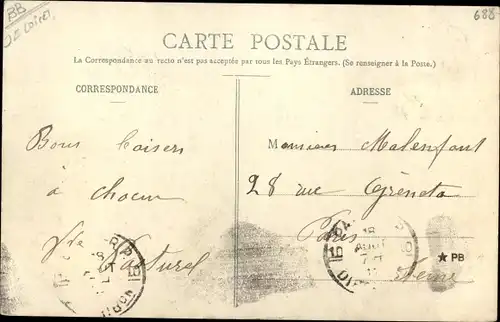 BB
688
CARTE POSTALE
La Correspondance au recto n'est pas acceptée par tous les Pays Étrangers. (Se renseigner à la Poste.)
CORRESPONDANCE
ADRESSE
Bons baisers
à chacun
Naturel
Monsieur Malenfant
28 rue Gréneta
Paris
Seine
★ PB